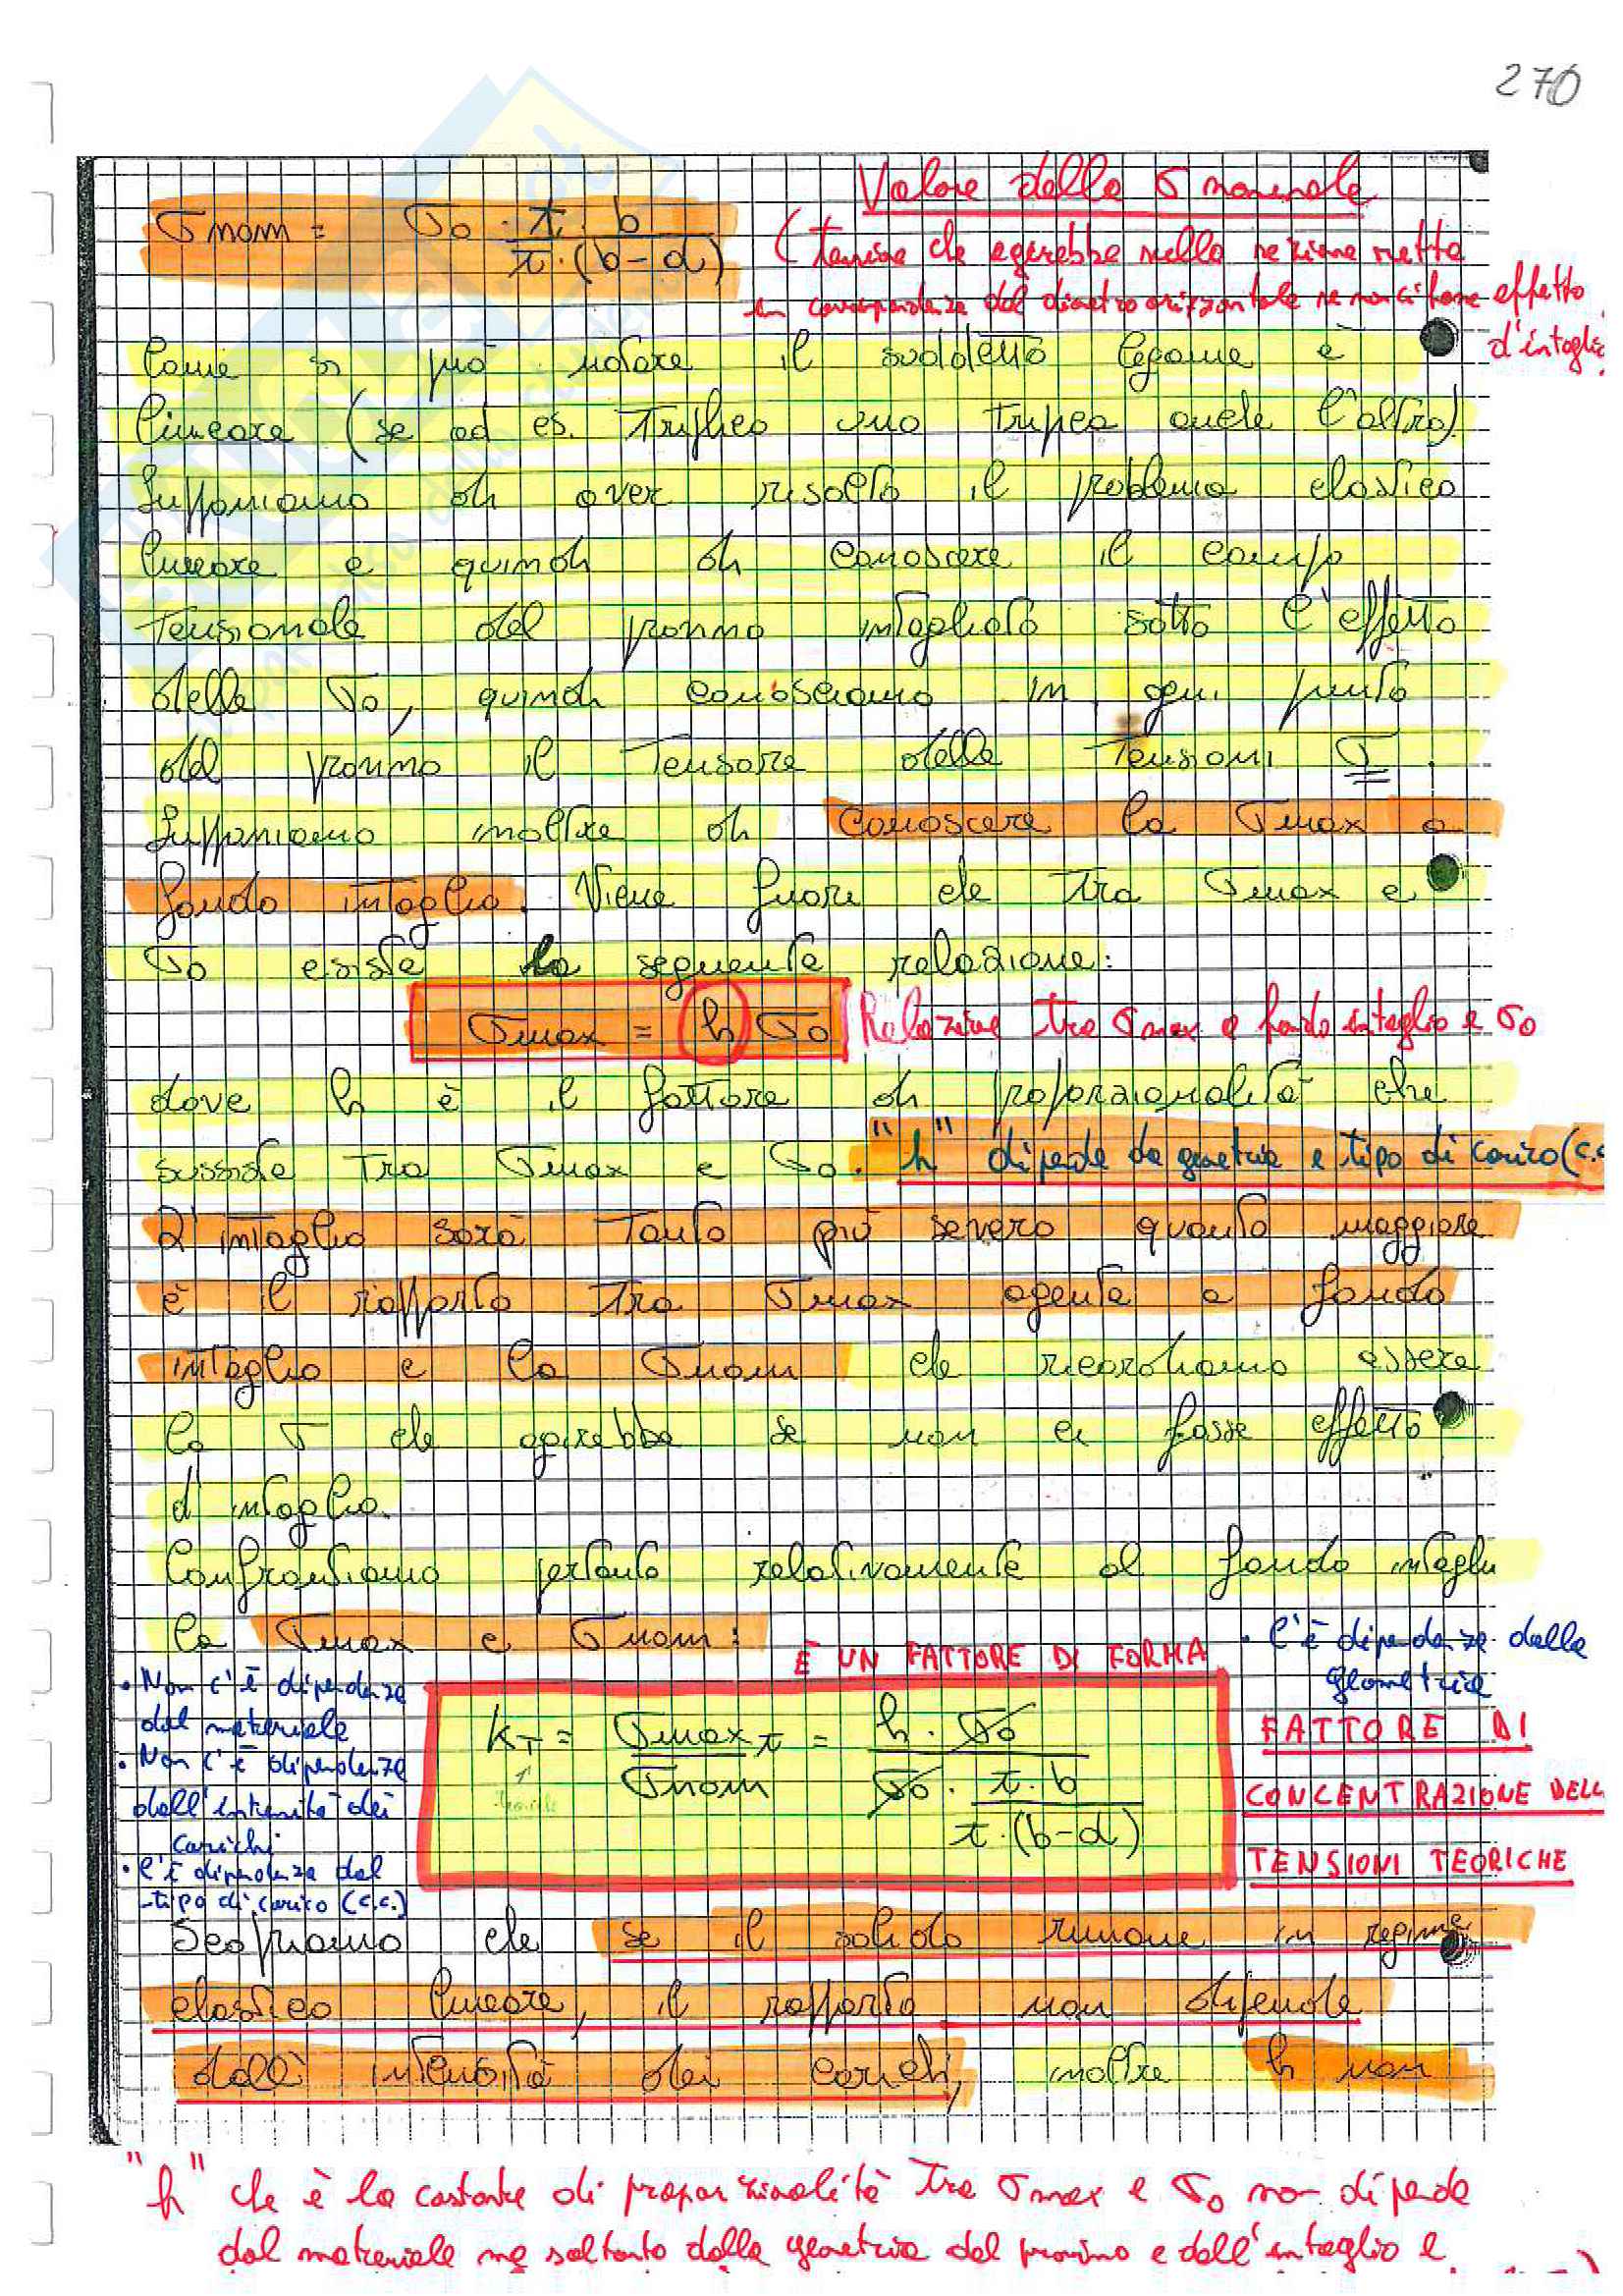 270
Valore della σ nominale
σnom = σo · t · b / t · (b-d)
(tensione che agirebbe nella sezione netta
in corrispondenza del diametro orizzontale se non ci fosse effetto
d'intaglio
Come si può notare il suddetto legame è
lineare (se ad es. triplico una triplica anche l'altra)
Supponiamo di aver risolto il problema elastico
lineare e quindi di conoscere il campo
tensionale del provino intagliato sotto l'effetto
della σo, quindi conosciamo in ogni punto
del provino il tensore delle tensioni σ.
Supponiamo inoltre di conoscere la σmax a
fondo intaglio. Viene fuori che tra σmax e
σo esiste la seguente relazione:
σmax = h σo Relazione tra σmax a fondo intaglio e σo
dove h è il fattore di proporzionalità che
sussiste tra σmax e σo. "h" dipende da geometria e tipo di carico (c.c
L'intaglio sarà tanto più severo quanto maggiore
è il rapporto tra σmax agente a fondo
intaglio e la σnom che ricordiamo essere
la σ che agirebbe se non ci fosse effetto
d'intaglio.
Confrontiamo pertanto relativamente al fondo intaglio
la σmax e σnom:
È UN FATTORE DI FORMA
• C'è dipendenza dalla
geometria
• Non c'è dipendenza
dal materiale
• Non c'è dipendenza
dall'intensità dei
carichi
• C'è dipendenza dal
tipo di carico (c.c.)
kT = σmax t / σnom = h · σo / σo · t · b / t · (b-d)
FATTORE DI
CONCENTRAZIONE DELL
TENSIONI TEORICHE
Scopriamo che se il solido rimane in regime
elastico lineare, il rapporto non dipende
dall' intensità dei carichi, inoltre h non
"h" che è la costante di proporzionalità tra σmax e σo non dipende
dal materiale ma soltanto dalla geometria del provino e dell'intaglio e